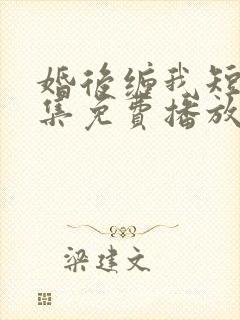 婚後缠我短
集免費播放
梁建文